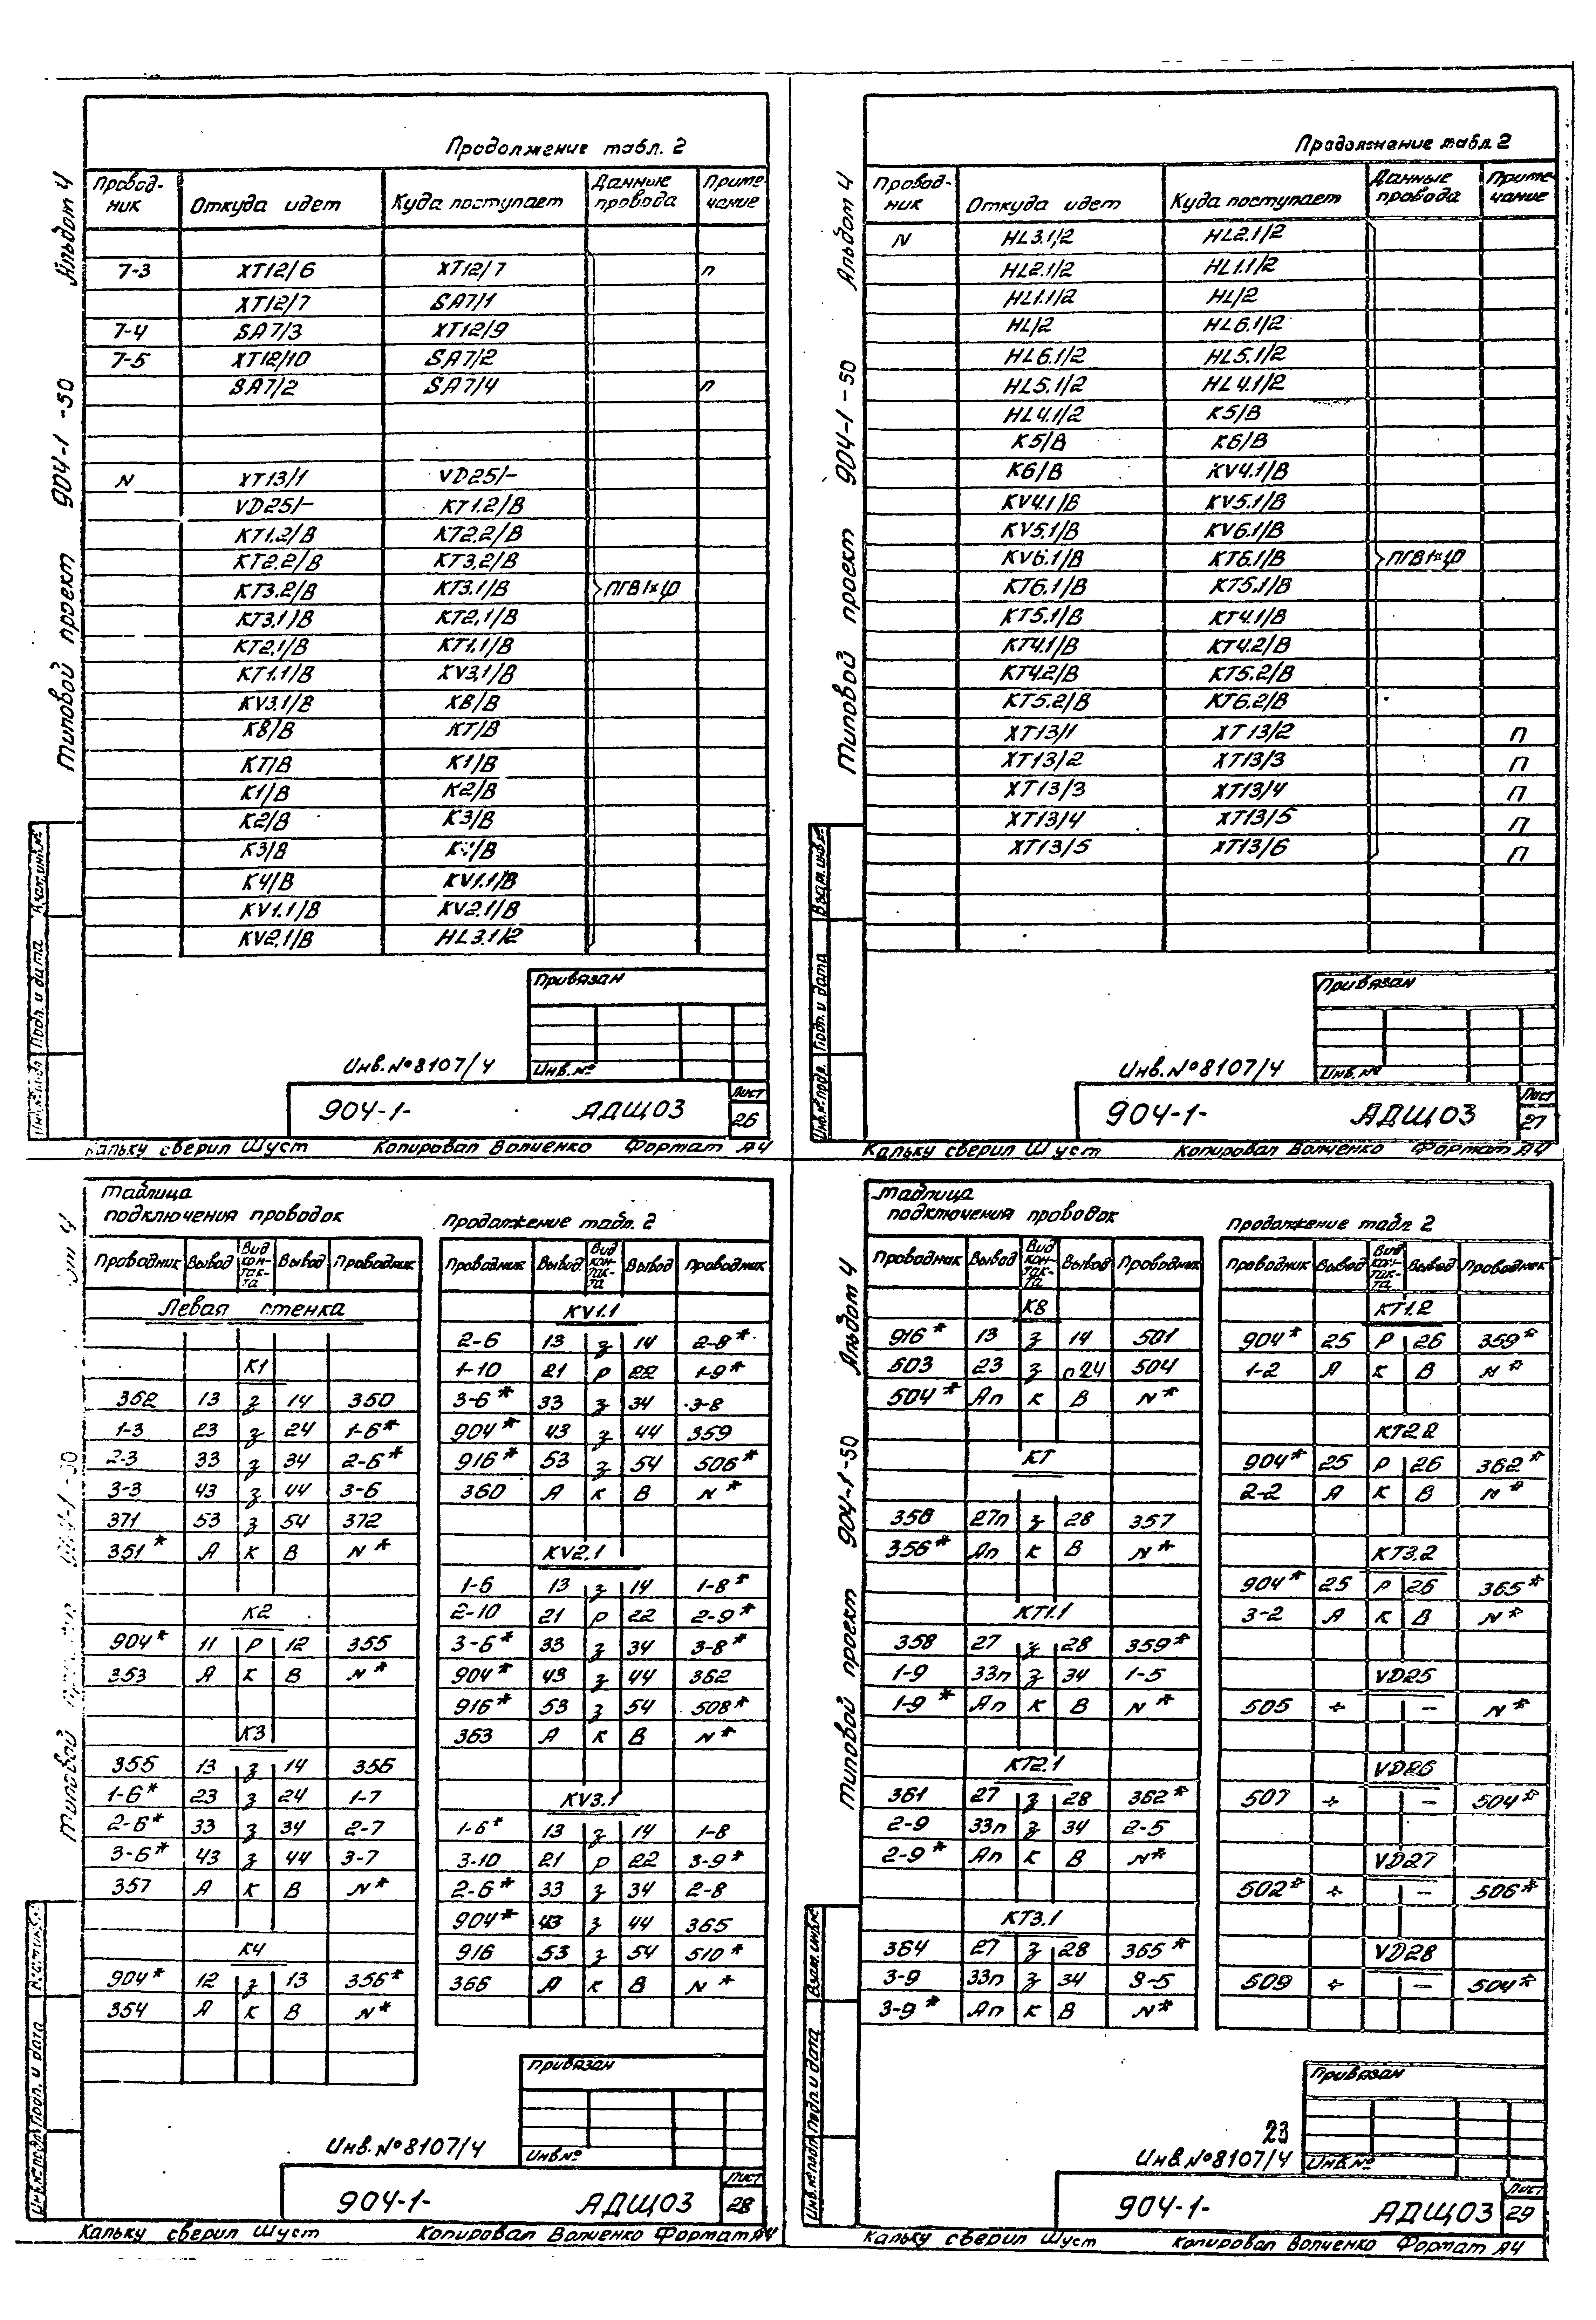 Альбом 4
Типовой проект 904-1-50
Продолжение табл. 2
Провод-ник Откуда идет Куда поступает Данные провода Приме-чание
7-3 XT12/6 XT12/7 п
XT12/7 SA7/1
7-4 SA7/3 XT12/9
7-5 XT12/10 SA7/2
SA7/2 SA7/4 п
N XT13/1 VD25/-
VD25/- KT1.2/B
KT1.2/B KT2.2/B
KT2.2/B KT3.2/B
KT3.2/B KT3.1/B ПГВ1×1,0
KT3.1/B KT2.1/B
KT2.1/B KT1.1/B
KT1.1/B XV3.1/B
KV3.1/B K8/B
K8/B KT/B
KT/B K1/B
K1/B K2/B
K2/B K3/B
K3/B K4/B
K4/B KV1.1/B
KV1.1/B KV2.1/B
KV2.1/B HL3.1/2
Привязан
Инв.№
Инв.№8107/4
904-1- АДЩ03
Лист
26
Кальку сверил Шуст Копировал Волченко Формат А4
Взам.инв.№
Подп. и дата
Альбом 4
Типовой проект 904-1-50
Продолжение табл. 2
Провод-ник Откуда идет Куда поступает Данные провода Приме-чание
N HL3.1/2 HL2.1/2
HL2.1/2 HL1.1/2
HL1.1/2 HL/2
HL/2 HL6.1/2
HL6.1/2 HL5.1/2
HL5.1/2 HL4.1/2
HL4.1/2 K5/B
K5/B K6/B
K6/B KV4.1/B
KV4.1/B KV5.1/B
KV5.1/B KV6.1/B
KV6.1/B KT6.1/B ПГВ1×1,0
KT6.1/B KT5.1/B
KT5.1/B KT4.1/B
KT4.1/B KT4.2/B
KT4.2/B KT5.2/B
KT5.2/B KT6.2/B
XT13/1 XT13/2 п
XT13/2 XT13/3 п
XT13/3 XT13/4 п
XT13/4 XT13/5 п
XT13/5 XT13/6 п
Привязан
Инв.№
Инв.№8107/4
904-1- АДЩ03
Лист
27
Кальку сверил Шуст Копировал Волченко Формат А4
Взам.инв.№
Подп. и дата
Инв.№ подл.
Типовой
Таблица
подключения проводок
Проводник Вывод Вид кон-так-та Вывод Проводник
Левая стенка
K1
352 13 з 14 350
1-3 23 з 24 1-6*
2-3 33 з 34 2-6*
3-3 43 з 44 3-6
371 53 з 54 372
351* А К В N*
K2
904* 11 Р 12 355
353 А К В N*
K3
355 13 з 14 356
1-6* 23 з 24 1-7
2-6* 33 з 34 2-7
3-6* 43 з 44 3-7
357 А К В N*
K4
904* 12 з 13 356*
354 А К В N*
Продолжение табл. 2
Проводник Вывод Вид кон-так-та Вывод Проводник
KV1.1
2-6 13 з 14 2-8*
1-10 21 Р 22 1-9*
3-6* 33 з 34 3-8
904* 43 з 44 359
916* 53 з 54 506*
360 А К В N*
KV2.1
1-6 13 з 14 1-8*
2-10 21 Р 22 2-9*
3-6* 33 з 34 3-8*
904* 43 з 44 362
916* 53 з 54 508*
363 А К В N*
KV3.1
1-6* 13 з 14 1-8
3-10 21 Р 22 3-9*
2-6* 33 з 34 2-8
904* 43 з 44 365
916 53 з 54 510*
366 А К В N*
Привязан
Инв.№
Инв.№8107/4
904-1- АДЩ03
Лист
28
Кальку сверил Шуст Копировал Волченко Формат А4
Подп. и дата
Инв.№ подл.
Альбом 4
Типовой проект 904-1-50
Таблица
подключения проводок
Проводник Вывод Вид кон-так-та Вывод Проводник
K8
916* 13 з 14 501
503 23 з п24 504
504* Ап К В N*
KT
356 27п з 28 357
356* Ап К В N*
KT1.1
358 27 з 28 359*
1-9 33п з 34 1-5
1-9* Ап К В N*
KT2.1
361 27 з 28 362*
2-9 33п з 34 2-5
2-9* Ап К В N*
KT3.1
364 27 з 28 365*
3-9 33п з 34 3-5
3-9* Ап К В N*
Продолжение табл 2
Проводник Вывод Вид кон-так-та Вывод Проводник
KT1.2
904* 25 Р 26 359*
1-2 А К В N*
KT2.2
904* 25 Р 26 362*
2-2 А К В N*
KT3.2
904* 25 Р 26 365*
3-2 А К В N*
VD25
505 + - N*
VD26
507 + - 504*
VD27
502* + - 506*
VD28
509 + - 504*
Привязан
Инв.№
23
Инв.№8107/4
904-1- АДЩ03
Лист
29
Кальку сверил Шуст Копировал Волченко Формат А4
Взам.инв.№
Подп. и дата
Инв.№ подл.